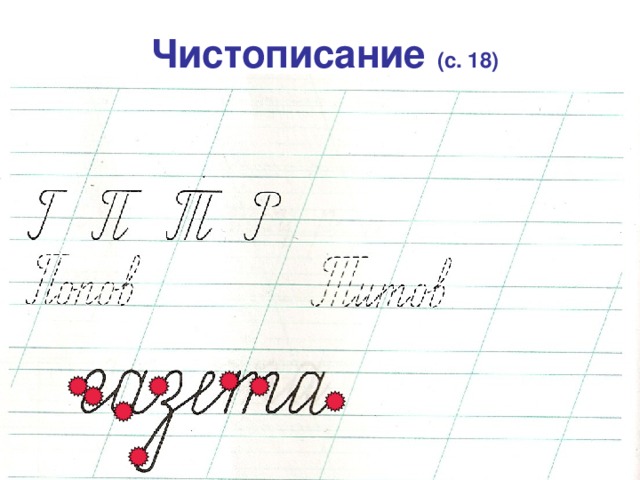 Чистописание (с. 18)
Г П Т Р
Попов Титов
газета